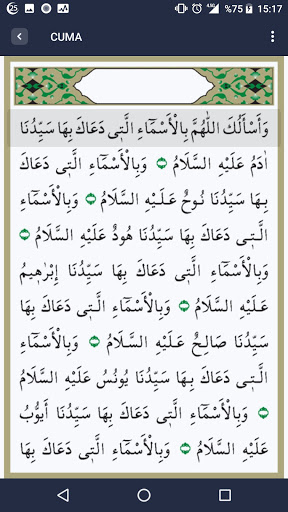 25 %75 15:17
CUMA
وَأَسْأَلُكَ اللّٰهُمَّ بِالْأَسْمَٓاءِ الَّتٖى دَعَاكَ بِهَا سَيِّدُنَا
اٰدَمُ عَلَيْهِ السَّلَامُ وَبِالْأَسْمَٓاءِ الَّتٖى دَعَاكَ
بِهَا سَيِّدُنَا نُوحٌ عَلَيْهِ السَّلَامُ وَبِالْأَسْمَٓاءِ
الَّتٖى دَعَاكَ بِهَا سَيِّدُنَا هُودٌ عَلَيْهِ السَّلَامُ
وَبِالْأَسْمَٓاءِ الَّتٖى دَعَاكَ بِهَا سَيِّدُنَا إِبْرٰهٖيمُ
عَلَيْهِ السَّلَامُ وَبِالْأَسْمَٓاءِ الَّتٖى دَعَاكَ بِهَا
سَيِّدُنَا صَالِحٌ عَلَيْهِ السَّلَامُ وَبِالْأَسْمَٓاءِ
الَّتٖى دَعَاكَ بِهَا سَيِّدُنَا يُونُسُ عَلَيْهِ السَّلَامُ
وَبِالْأَسْمَٓاءِ الَّتٖى دَعَاكَ بِهَا سَيِّدُنَا أَيُّوبُ
عَلَيْهِ السَّلَامُ وَبِالْأَسْمَٓاءِ الَّتٖى دَعَاكَ بِهَا